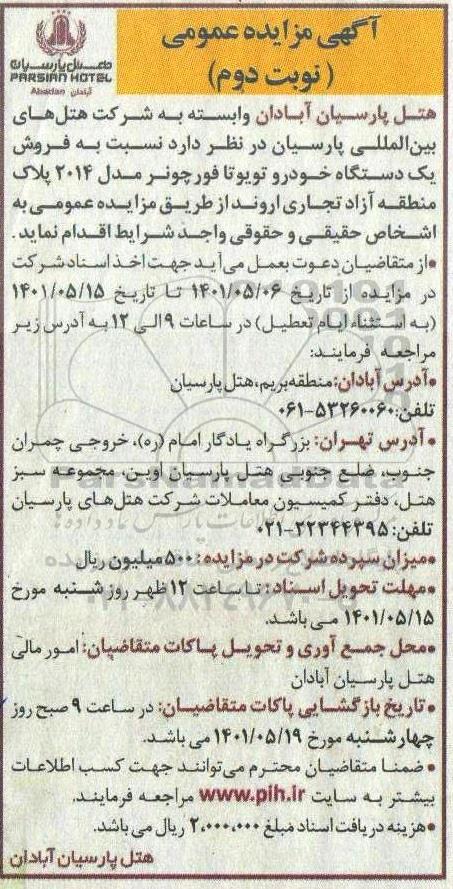 آگهی مزایده عمومی
(نوبت دوم)
هتل پارسیان
PARSIAN HOTEL
آبادان Abadan
هتل پارسیان آبادان وابسته به شرکت هتل‌های
بین‌المللی پارسیان در نظر دارد نسبت به فروش
یک دستگاه خودرو تویوتا فورچونر مدل ۲۰۱۴ پلاک
منطقه آزاد تجاری اروند از طریق مزایده عمومی به
اشخاص حقیقی و حقوقی واجد شرایط اقدام نماید.
•از متقاضیان دعوت بعمل می‌آید جهت اخذ اسناد شرکت
در مزایده از تاریخ ۱۴۰۱/۰۵/۰۶ تا تاریخ ۱۴۰۱/۰۵/۱۵
(به استثناء ایام تعطیل) در ساعات ۹ الی ۱۲ به آدرس زیر
مراجعه فرمایند:
•آدرس آبادان: منطقه بریم، هتل پارسیان
تلفن: ۵۳۲۶۰۰۶۰-۰۶۱
•آدرس تهران: بزرگراه یادگار امام (ره)، خروجی چمران
جنوب، ضلع جنوبی هتل پارسیان اوین، مجموعه سبز
هتل، دفتر کمیسیون معاملات شرکت هتل‌های پارسیان
تلفن: ۲۲۳۴۴۳۹۵-۰۲۱
•میزان سپرده شرکت در مزایده: ۵۰۰ میلیون ریال
•مهلت تحویل اسناد: تا ساعت ۱۲ ظهر روز شنبه مورخ
۱۴۰۱/۰۵/۱۵ می باشد.
•محل جمع آوری و تحویل پاکات متقاضیان: امور مالی
هتل پارسیان آبادان
•تاریخ بازگشایی پاکات متقاضیان: در ساعت ۹ صبح روز
چهارشنبه مورخ ۱۴۰۱/۰۵/۱۹ می باشد.
•ضمنا متقاضیان محترم می‌توانند جهت کسب اطلاعات
بیشتر به سایت www.pih.ir مراجعه فرمایند.
•هزینه دریافت اسناد مبلغ ۲,۰۰۰,۰۰۰ ریال می باشد.
هتل پارسیان آبادان